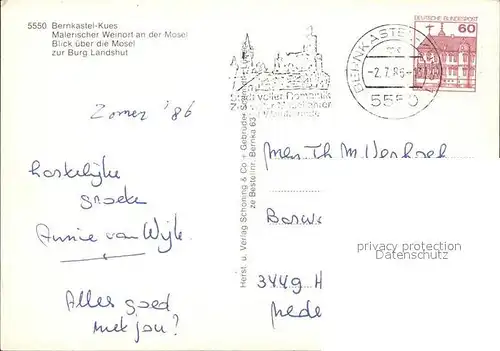 5550 Bernkastel-Kues
Malerischer Weinort an der Mosel
Blick über die Mosel
zur Burg Landshut
DEUTSCHE BUNDESPOST
60
BERNKASTEL
-2.7.86-
5550
voller Romantik
Zomer '86
Hartelijke
groeten
Annie van Wijk.
Alles goed
met jou?
Herst. u. Verlag Schöning & Co + Gebrüder
ze Bestellnr. Bernka 63
Th M
3449 H
Nede
privacy protection
Datenschutz